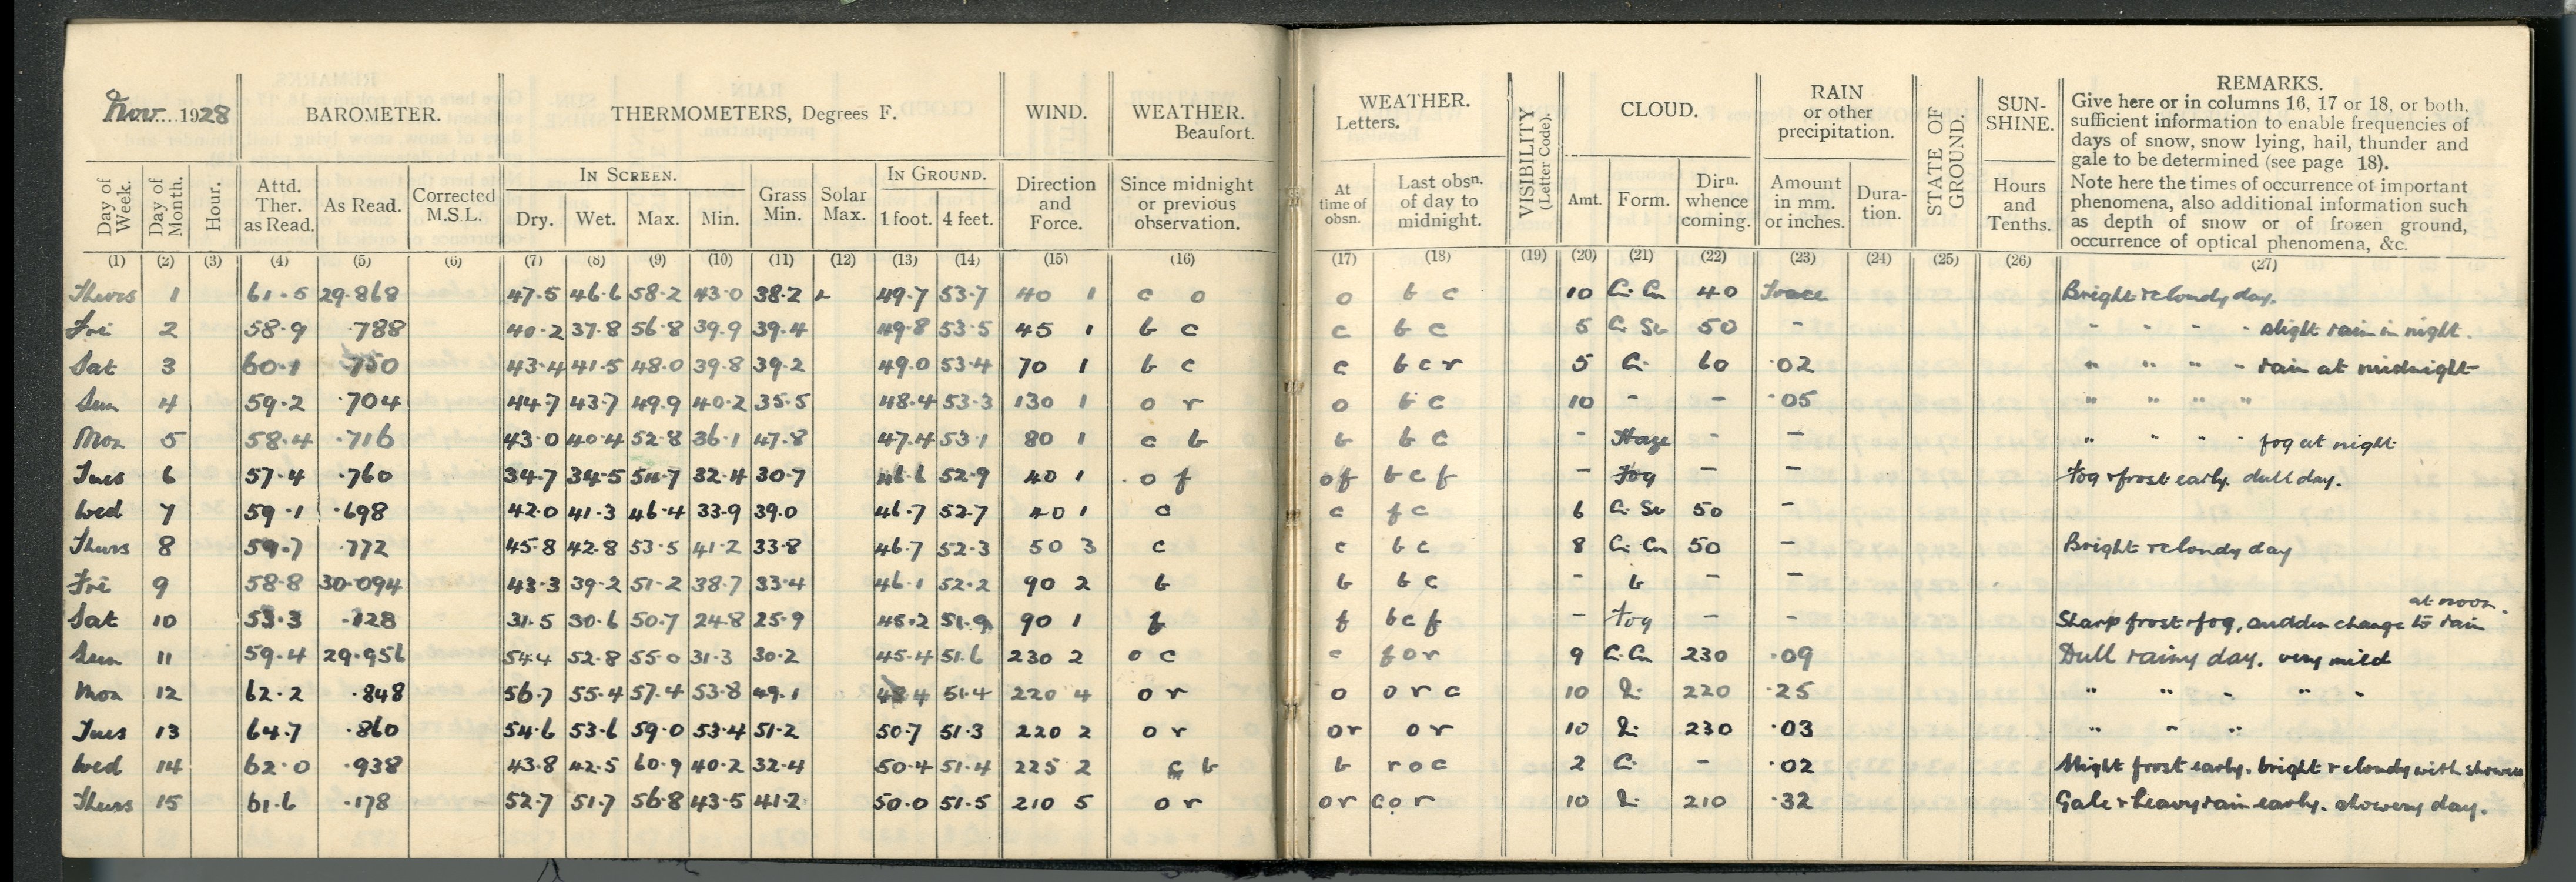 Nov. 1928
BAROMETER.
THERMOMETERS, Degrees F.
WIND.
WEATHER.
Beaufort.
Day of Week.
Day of Month.
Hour.
Attd. Ther. as Read.
As Read.
Corrected M.S.L.
IN SCREEN.
Dry. Wet. Max. Min.
Grass Min.
Solar Max.
IN GROUND.
1 foot. 4 feet.
Direction and Force.
Since midnight or previous observation.
(1) (2) (3) (4) (5) (6) (7) (8) (9) (10) (11) (12) (13) (14) (15) (16)
WEATHER.
Letters.
At time of obsn.
Last obsn. of day to midnight.
VISIBILITY (Letter Code).
CLOUD.
Amt. Form.
Dirn. whence coming.
RAIN or other precipitation.
Amount in mm. or inches.
Dura-tion.
STATE OF GROUND.
SUN-SHINE.
Hours and Tenths.
REMARKS.
Give here or in columns 16, 17 or 18, or both,
sufficient information to enable frequencies of
days of snow, snow lying, hail, thunder and
gale to be determined (see page 18).
Note here the times of occurrence of important
phenomena, also additional information such
as depth of snow or of frozen ground,
occurrence of optical phenomena, &c.
(17) (18) (19) (20) (21) (22) (23) (24) (25) (26) (27)
Thurs 1 61.5 29.868 47.5 46.6 58.2 43.0 38.2 49.7 53.7 40 1 c o o b c 10 Ci. Cu 40 Trace Bright & cloudy day.
Fri 2 58.9 .788 40.2 37.8 56.8 39.9 39.4 49.8 53.5 45 1 b c c b c 5 Ci Se 50 - " " " " slight rain in night.
Sat 3 60.1 .750 43.4 41.5 48.0 39.8 39.2 49.0 53.4 70 1 b c c b c r 5 Ci. 60 .02 " " " " rain at midnight
Sun 4 59.2 .704 44.7 43.7 49.9 40.2 35.5 48.4 53.3 130 1 o r o b c 10 - - .05 " " " "
Mon 5 58.4 .716 43.0 40.4 52.8 36.1 47.8 47.4 53.1 80 1 c b b b c - Haze - - " " " " fog at night
Tues 6 57.4 .760 34.7 34.5 32.4 30.7 46.6 52.9 40 1 o f of b c f - Fog - - Fog & frost early. dull day.
Wed 7 59.1 .698 42.0 41.3 46.4 33.9 39.0 46.7 52.7 40 1 c c f c 6 Ci. Se 50 -
Thurs 8 59.7 .772 45.8 42.8 53.5 41.2 33.8 46.7 52.3 50 3 c c b c 8 Ci. Cu 50 - Bright & cloudy day
Fri 9 58.8 30.094 43.3 39.2 51.2 38.7 33.4 46.1 52.2 90 2 b b b c - b - -
Sat 10 53.3 .128 31.5 30.6 50.7 24.8 25.9 45.2 51.9 90 1 f f b c f - Fog - - Sharp frost & fog, sudden change to rain at noon.
Sun 11 59.4 29.956 54.4 52.8 55.0 31.3 30.2 45.4 51.6 230 2 o c c f o r 9 Ci. Cu 230 .09 Dull rainy day. very mild
Mon 12 62.2 .848 56.7 55.4 57.4 53.8 49.1 48.4 51.4 220 4 o r o o r c 10 220 .25 " " " " "
Tues 13 64.7 .860 54.6 53.6 59.0 53.4 51.2 50.7 51.3 220 2 o r or o r 10 230 .03 " " "
Wed 14 62.0 .938 43.8 42.5 60.9 40.2 32.4 50.4 51.4 225 2 c b b r o c 2 Ci. - .02 Slight frost early. bright & cloudy with showers
Thurs 15 61.6 .178 52.7 51.7 56.8 43.5 41.2 50.0 51.5 210 5 o r or c o r 10 210 .32 Gale & heavy rain early. showery day.